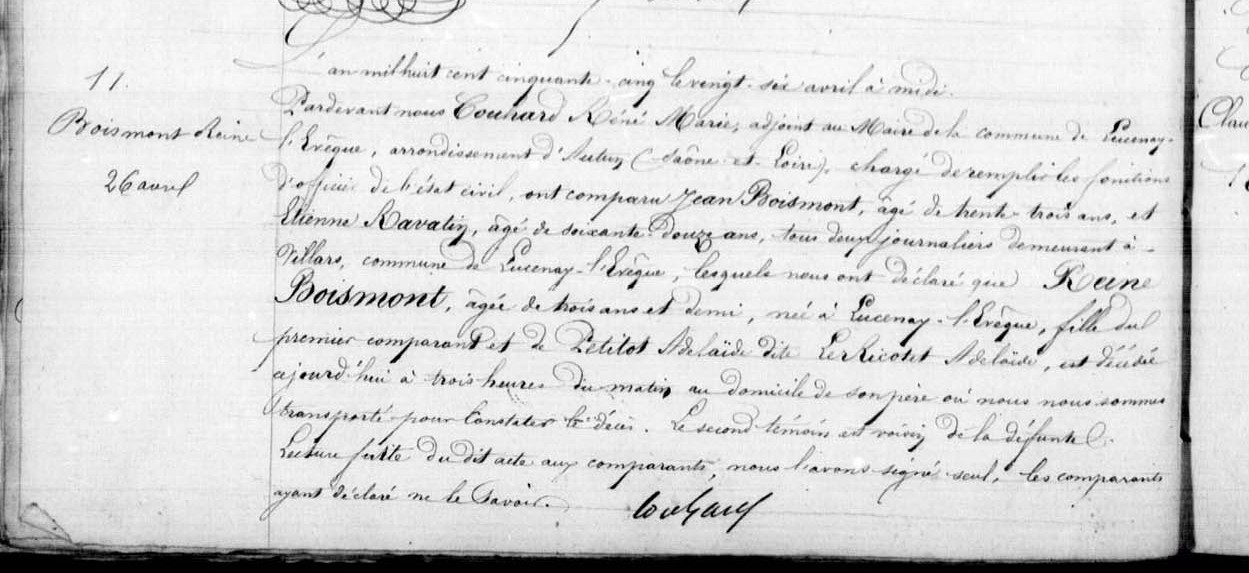 11.
Boismont Reine
26 avril
L'an mil huit cent cinquante-cinq le vingt-six avril à midi.
Pardevant nous Couhard Réné Marie, adjoint au Maire de la commune de Lucenay-
l'Evêque, arrondissement d'Autun (Saône-et-Loire), chargé de remplir les fonctions
d'officier de l'état civil, ont comparu Jean Boismont, âgé de trente-trois ans, et
Etienne Ravatin, âgé de soixante-douze ans, tous deux journaliers demeurant à
Villars, commune de Lucenay-l'Evêque, lesquels nous ont déclaré que Reine
Boismont, âgée de trois ans et demi, née à Lucenay-l'Evêque, fille du
premier comparant et de Petitot Adelaïde dite Lerricotet Adelaïde, est décédée
ajourd'hui à trois heures du matin au domicile de son père où nous nous sommes
transporté pour constater le décès. Le second témoin est voisin de la défunte.
Lecture faite du dit acte aux comparants, nous l'avons signé seul, les comparants
ayant déclaré ne le savoir.
Couhard
Clau